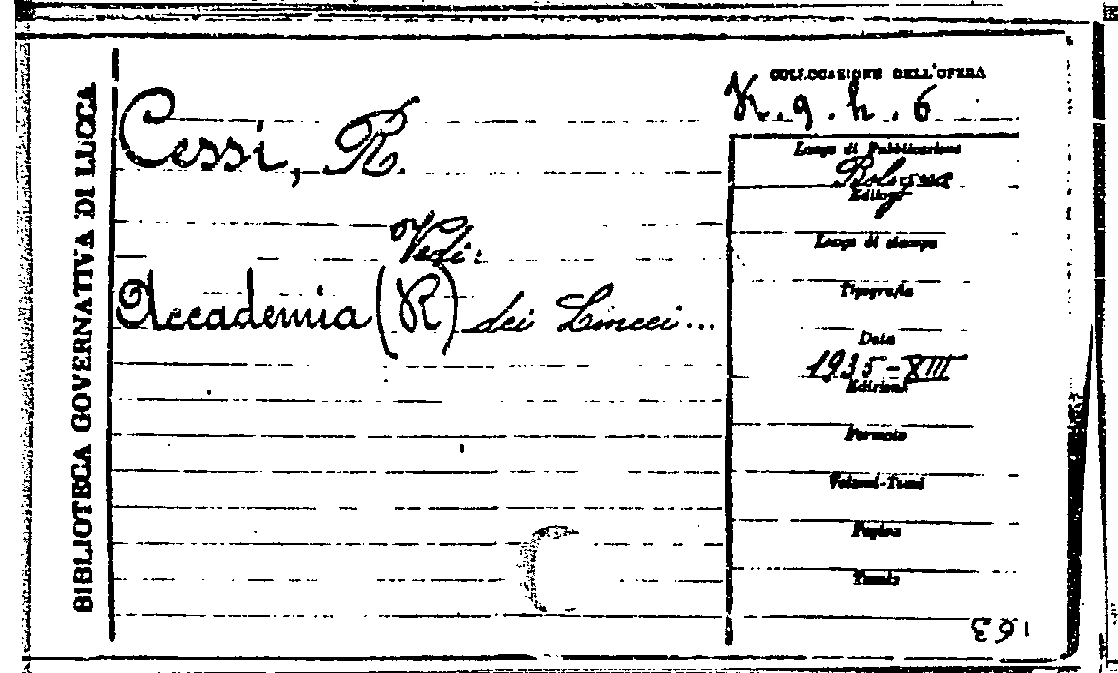 BIBLIOTECA GOVERNATIVA DI LUCCA
Cessi, R.
Vedi:
Accademia (R) dei Lincei...
COLLOCAZIONE DELL'OPERA
K.9.h.6
Luogo di Pubblicazione
Bologna
Editore
Luogo di stampa
Tipografia
Data
1935-XIII
Edizione
Formato
Volumi-Tomi
Pagine
Tavole
163